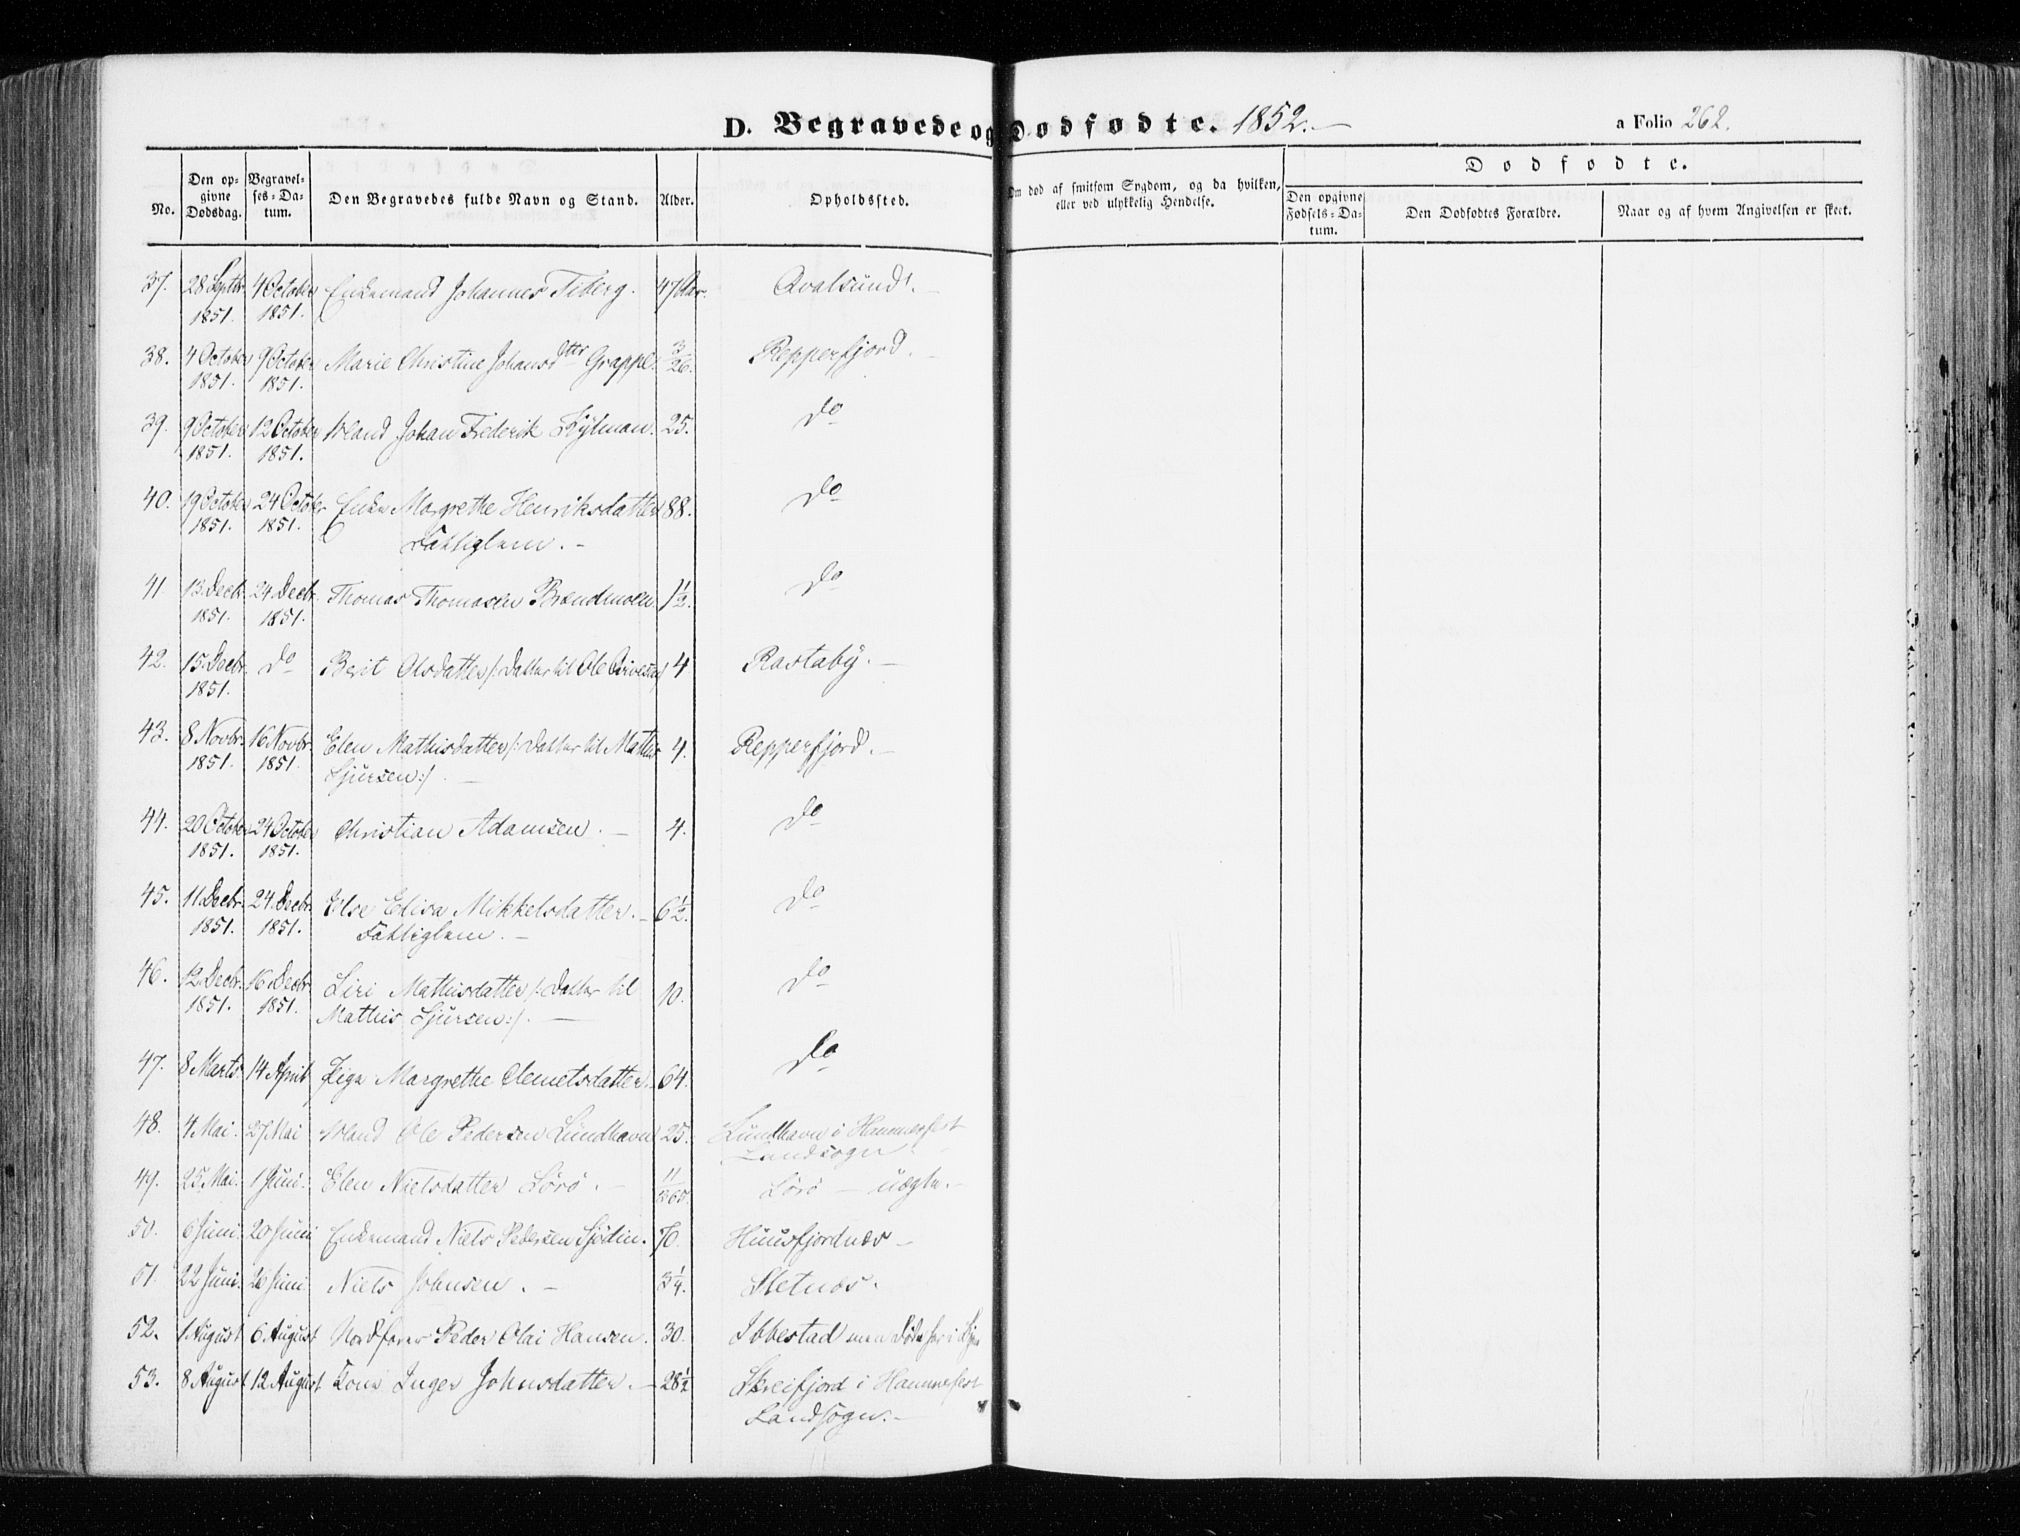 D. Begravede og Dødfødte. 1852.
a Folio 262.
No.
Den opgivne Dødsdag.
Begravelses-Datum.
Den Begravedes fulde Navn og Stand.
Alder.
Opholdssted.
Om død af smitsom Sygdom, og da hvilken, eller ved ulykkelig Hendelse.
Dødfødte.
Den opgivne Fødsels-Datum.
Den Dødfødtes Forældre.
Naar og af hvem Angivelsen er skeet.
37. 28 Septbr. 4 October Enkemand Johannes Fiberg. 47 Aar. Qvalsund.
1851. 1851.
38. 4 October 9 October Marie Christine Johansdttr Grappe. 3/26. Repperfjord.
1851. 1851.
39. 9 October 12 October Mand Johan Frederik Kylman. 25. do
1851. 1851.
40. 19 October 24 October Enke Margrethe Henriksdatter 88. do
1851. 1851. Fattiglem.
41 13 Decbr. 24 Decbr. Thomas Thomasen Brendmoen. 1½. do
1851. 1851.
42. 15 Decbr. do Berit Olsdatter /: Datter til Ole 4 Rastaby.
1851.
43. 8 Novbr. 16 Novbr. Elen Mathisdatter /: Datter til Mathis 4. Repperfjord.
1851. 1851. Sjursen :/.
44. 20 October 24 October Christian Adamsen. 4. do
1851. 1851.
45. 11 Decbr. 24 Decbr. Else Elisa Mikkelsdatter. 6½. do
1851. 1851. Fattiglem.
46. 12 Decbr. 16 Decbr. Siri Mathisdatter /: Datter til 10. do
1851. 1851. Mathis Sjursen :/.
47. 8 Marts 14 April Pige Margrethe Clemetsdatter. 64. do
48. 4 Mai. 27 Mai Mand Ole Pedersen Lundhavn 25. Lundhavn i Hammerfest
Landsogn
49. 25 Mai. 1 Juni. Elen Nielsdatter Lørø. 11/360. Lørø – uægte.
50. 6 Juni. 20 Juni Enkemand Niels Pedersen Sjødin. 70. Huusfjordnæs
51. 22 Juni. 26 Juni Niels Johnsen. 3¼. Sletnæs.
52. 1 August 6 August Nordfarer Peder Olai Hansen. 30. Ibbestad men døde her i
53. 8 August 12 August Kone Inger Johnsdatter. 28½ Skreifjord i Hammerfest
Landsogn.